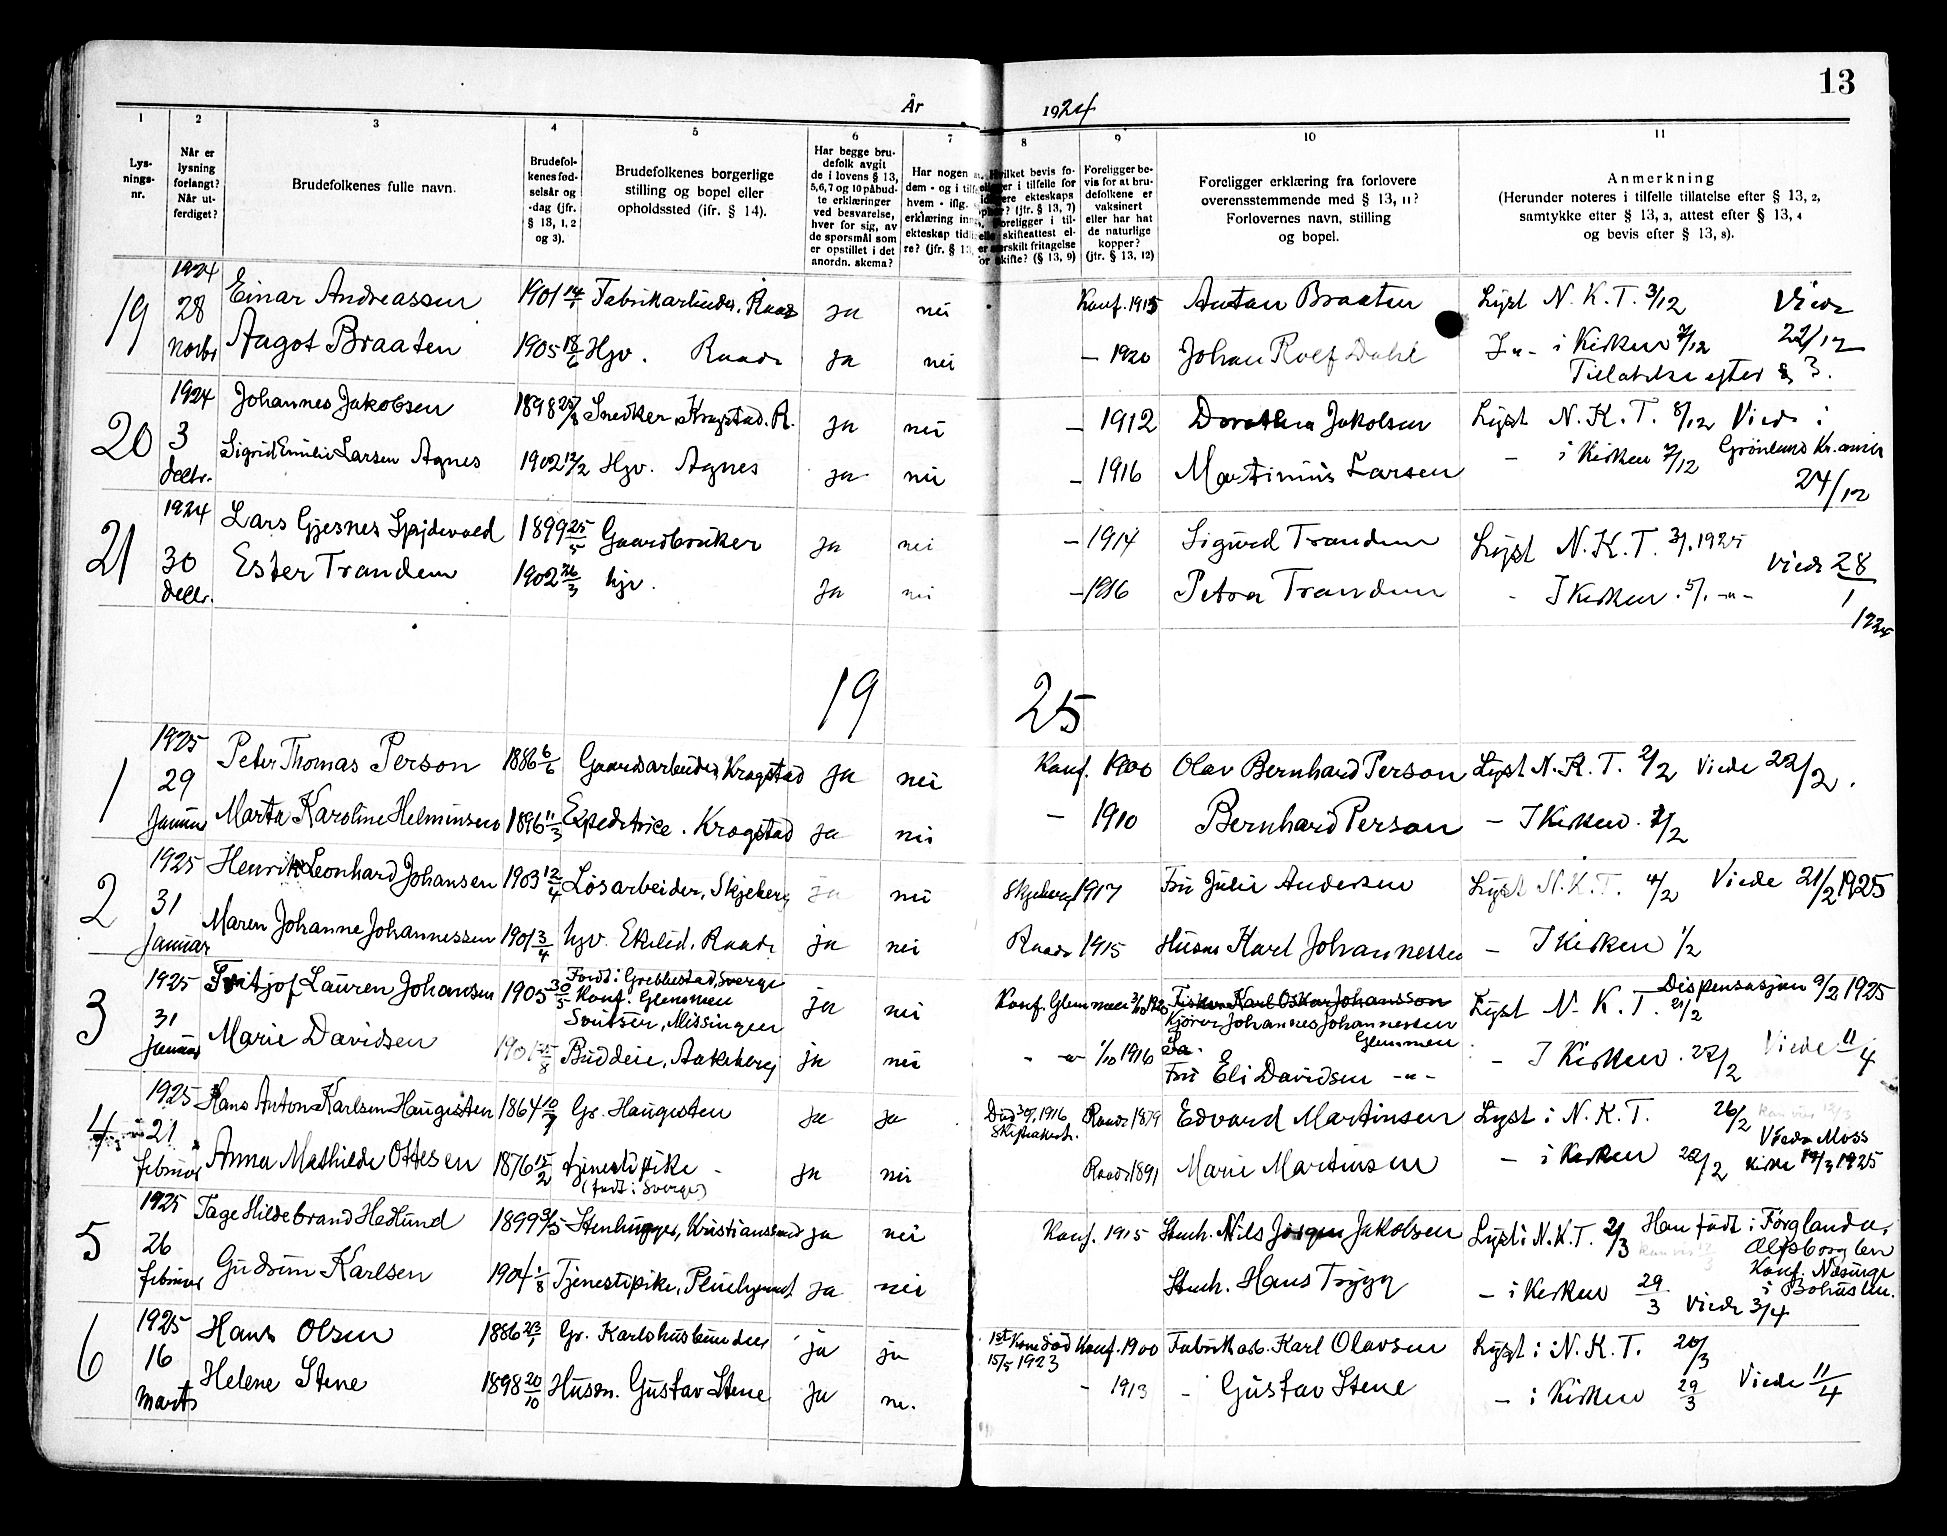 13
År 1924
1 2 3 4 5 6 7 8 9 10 11
Lys-
nings-
nr.
Når er
lysning
forlangt?
Når ut-
ferdiget?
Brudefolkenes fulle navn.
Brudefol-
kenes fød-
selsår og
-dag (jfr.
§ 13, 1, 2
og 3).
Brudefolkenes borgerlige
stilling og bopel eller
opholdssted (ifr. § 14).
Har begge bru-
defolk avgit
de i lovens § 13,
5,6,7 og 10 påbud-
te erklæringer
ved besvarelse,
hver for sig, av
de spørsmål som
er opstillet i det
anordn. skema?
Har nogen a
dem - og i tilf
hvem - iflg.
erklæring inn
ekteskap tidl
re? (jfr. § 13,
Hvilket bevis fo-
religger i tilfelle for
ekteskaps
(jfr. § 13, 7)
Foreligger i til-
skifteattest el-
særskilt fritagelse
for skifte? (§ 13, 9)
Foreligger be-
vis for at bru-
defolkene er
vaksinert
eller har hat
de naturlige
kopper?
(jfr. § 13, 12)
Foreligger erklæring fra forlovere
overensstemmende med § 13, 11?
Forlovernes navn, stilling
og bopel.
Anmerkning
(Herunder noteres i tilfelle tillatelse efter § 13, 2,
samtykke efter § 13, 3, attest efter § 13, 4
og bevis efter § 13, 8).
19 1924 28 Novbr
Einar Andreassen 1901 14/1 Fabrikarbeider, Raade ja nei Konf. 1915 Anton Braaten Lyst N. K. T. 3/12 Viede
Aagot Braaten 1905 18/6 Hjv. Raade ja nei – 1920 Johan Rolf Dahl I –"– i Kirken 7/12 22/12
Tillatelse efter § 3.
20 1924 3 decbr.
Johannes Jakobsen 1898 Snedker, Kragstad. R. ja nei – 1912 Dorothea Jakobsen Lyst N. K. T. 8/12 Viede i
Sigrid Emilie Larsen Agnes 1902 12/2 Hjv. Agnes ja nei – 1916 Martinius Larsen – i Kirken 7/12 Grønland Kr.ania
24/12
21 1924 30 decbr.
Lars Gjesnes Spydevold 1899 25/5 Gaardbruker ja nei – 1914 Sigurd Trandem Lyst N. K. T. 1925
Ester Trandem 1902 26/3 hjv. ja nei – 1916 Petra Trandem – I Kirken. 5/1. –"– Viede 28/1
19 25
1 1925 29 Januar
Peter Thomas Person 1886 6/6 Gaardsarbeider, Kragstad ja nei Konf. 1900 Olav Bernhard Person Lyst N. K. T. 2/2 Viede 22/2.
Marta Karoline Helminsen 1896 11/3 Expeditrice. Kragstad ja nei – 1910 Bernhard Person – I Kirken. 1/2
2 1925 31 Januar
Henrik Leonhard Johansen 1903 12/4 Løsarbeider, Skjeberg ja nei Skjeberg 1917 Fru Julie Andersen Lyst N. K. T. 4/2 Viede 21/2 1925
Maren Johanne Johannessen 1901 3/4 hjv. Ekelid, Raade ja nei Raade 1915 Husm. Karl Johannessen – I Kirken 1/2
3 1925 31 Januar
Fritjof Lauren Johansen 1905 30/5 Født i Grebbestad, Sverge
Konf. Glemmen
Svitser, Missingen ja nei Konf. Glemmen Fisker Karl Oskar Johansson
Kjører Johannes Johannessen
Glemmen Lyst N. K. T. 21/2 Dispensasjon 9/2 1925
Marie Davidsen 1901 25/8 Budeie, Aakeberg ja nei – –"– 1/10 1916 Fru Eli Davidsen –"– – I Kirken. 22/2 Viede 11/4
4 1925 21 februar
Hans Anton Karlsen Haugesten 1864 10/7 Gr. Haugesten ja ja Død 1916
Skifteattest. Raade 1879 Edvard Martinsen Lyst i N. K. T. 26/2
Anna Mathilde Ottesen 1876 15/2 tjenestepike –
(født i Sverge) ja nei Raade 1891 Marie Martinsen – i Kirken 22/2 Viede Moss
Kirke 14/3 1925
5 1925 26 februar
Tage Hildebrand Hedlund 1899 3/5 Stenhugger, Kristianssand ja nei Konf. 1915 Stenh. Nils Jørgen Jakobsen Lyst i N. K. T. 2/3 Han født i Førglanda,
Konf.
i Bohuslen.
Gudrun Karlsen 1904 1/8 Tjenestepike, ja nei Stenh. Hans Trygg – i Kirken 29/3 Viede 3/4
6 1925 16 Marts
Hans Olsen 1886 23/1 Gr. Karlshusbunden ja ja 1st Kone død
15/5 1923 Konf. 1900 Fabrikarb. Karl Olavsen Lyst i N. K. T. 20/3
Helene Stene 1898 20/10 Husm. Gustav Stene ja ne. – 1913 – Gustav Stene – i Kirken 29/3 Viede 11/4